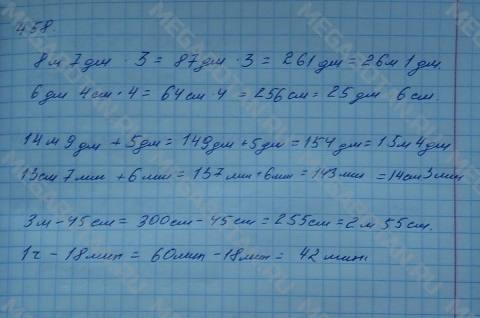 458.
8м 7дм · 3 = 87дм · 3 = 261 дм = 26м 1 дм.
6дм 4см · 4 = 64см · 4 = 256см = 25 дм 6 см.
14м 9дм + 5дм = 149дм + 5дм = 154дм = 15м 4дм
13см 7мм + 6мм = 137мм + 6мм = 143мм = 14см 3мм
3м - 45см = 300см - 45см = 255см = 2м 55см.
1ч - 18мин = 60мин - 18мин = 42 мин